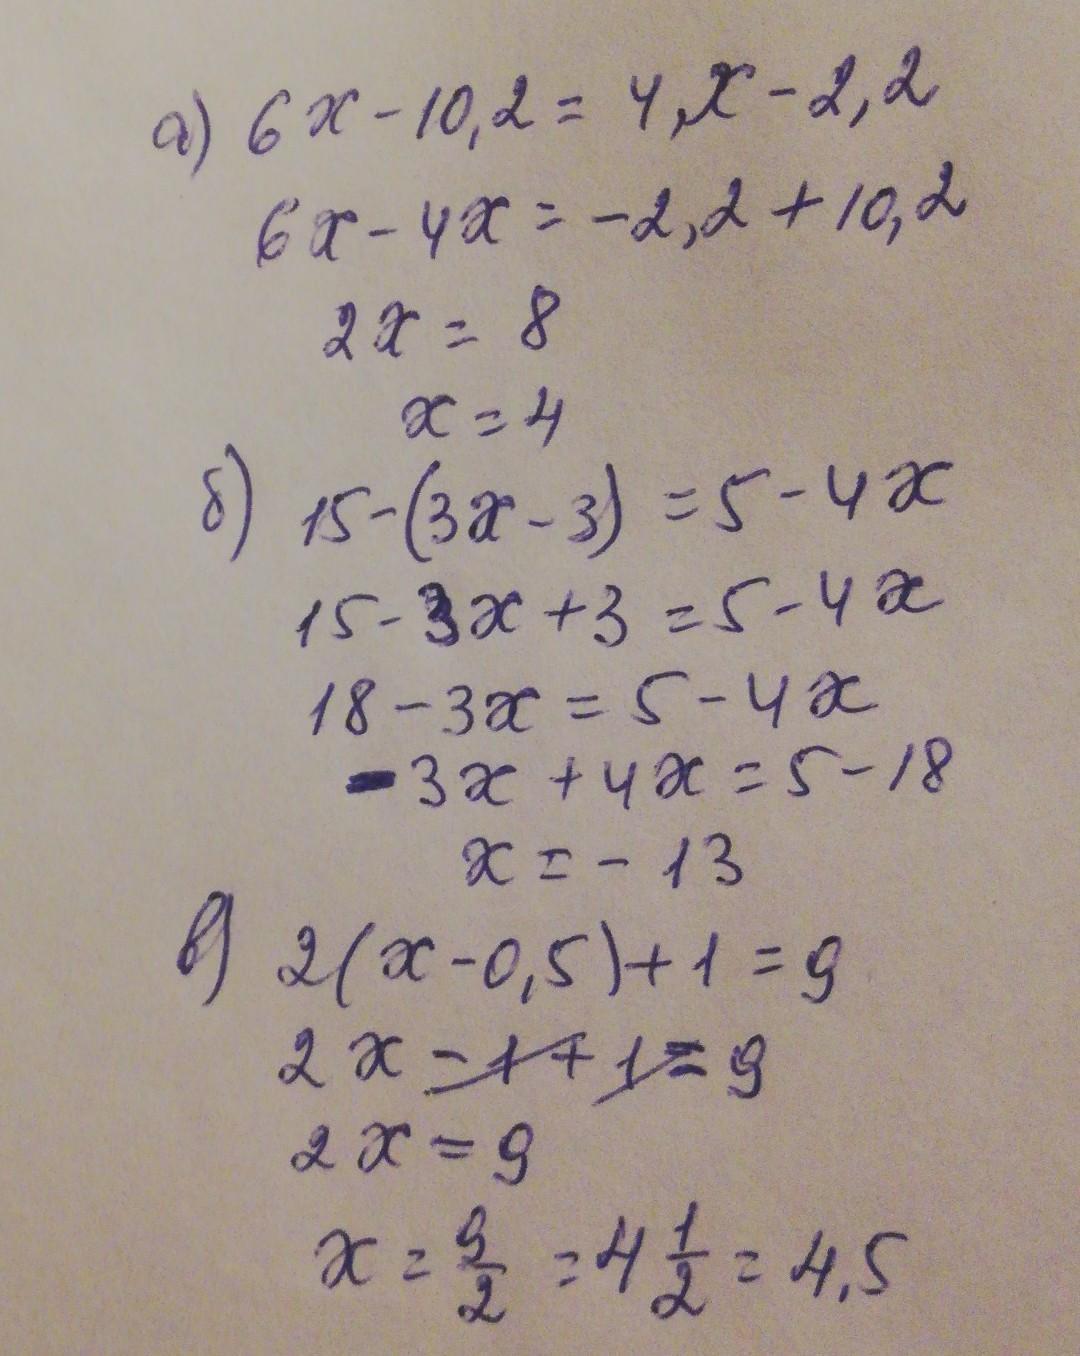 а) 6x - 10,2 = 4,x - 2,2
6x - 4x = -2,2 + 10,2
2x = 8
x = 4
б) 15 - (3x - 3) = 5 - 4x
15 - 3x + 3 = 5 - 4x
18 - 3x = 5 - 4x
- 3x + 4x = 5 - 18
x = - 13
в) 2(x - 0,5) + 1 = 9
2x - 1 + 1 = 9
2x = 9
x = 9/2 = 4 1/2 = 4,5